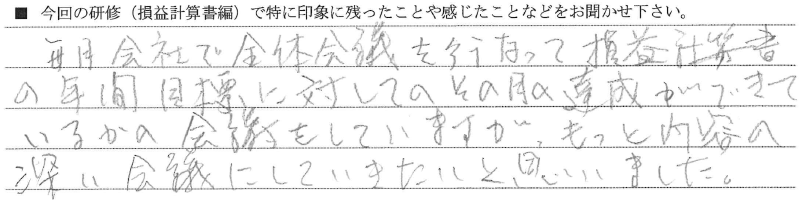 ■ 今回の研修（損益計算書編）で特に印象に残ったことや感じたことなどをお聞かせ下さい。
毎月会社で全体会議を行なって損益計算書
の年間目標に対してのその月の達成ができて
いるかの会議をしていますが、もっと内容の
深い会議にしていきたいと思いました。